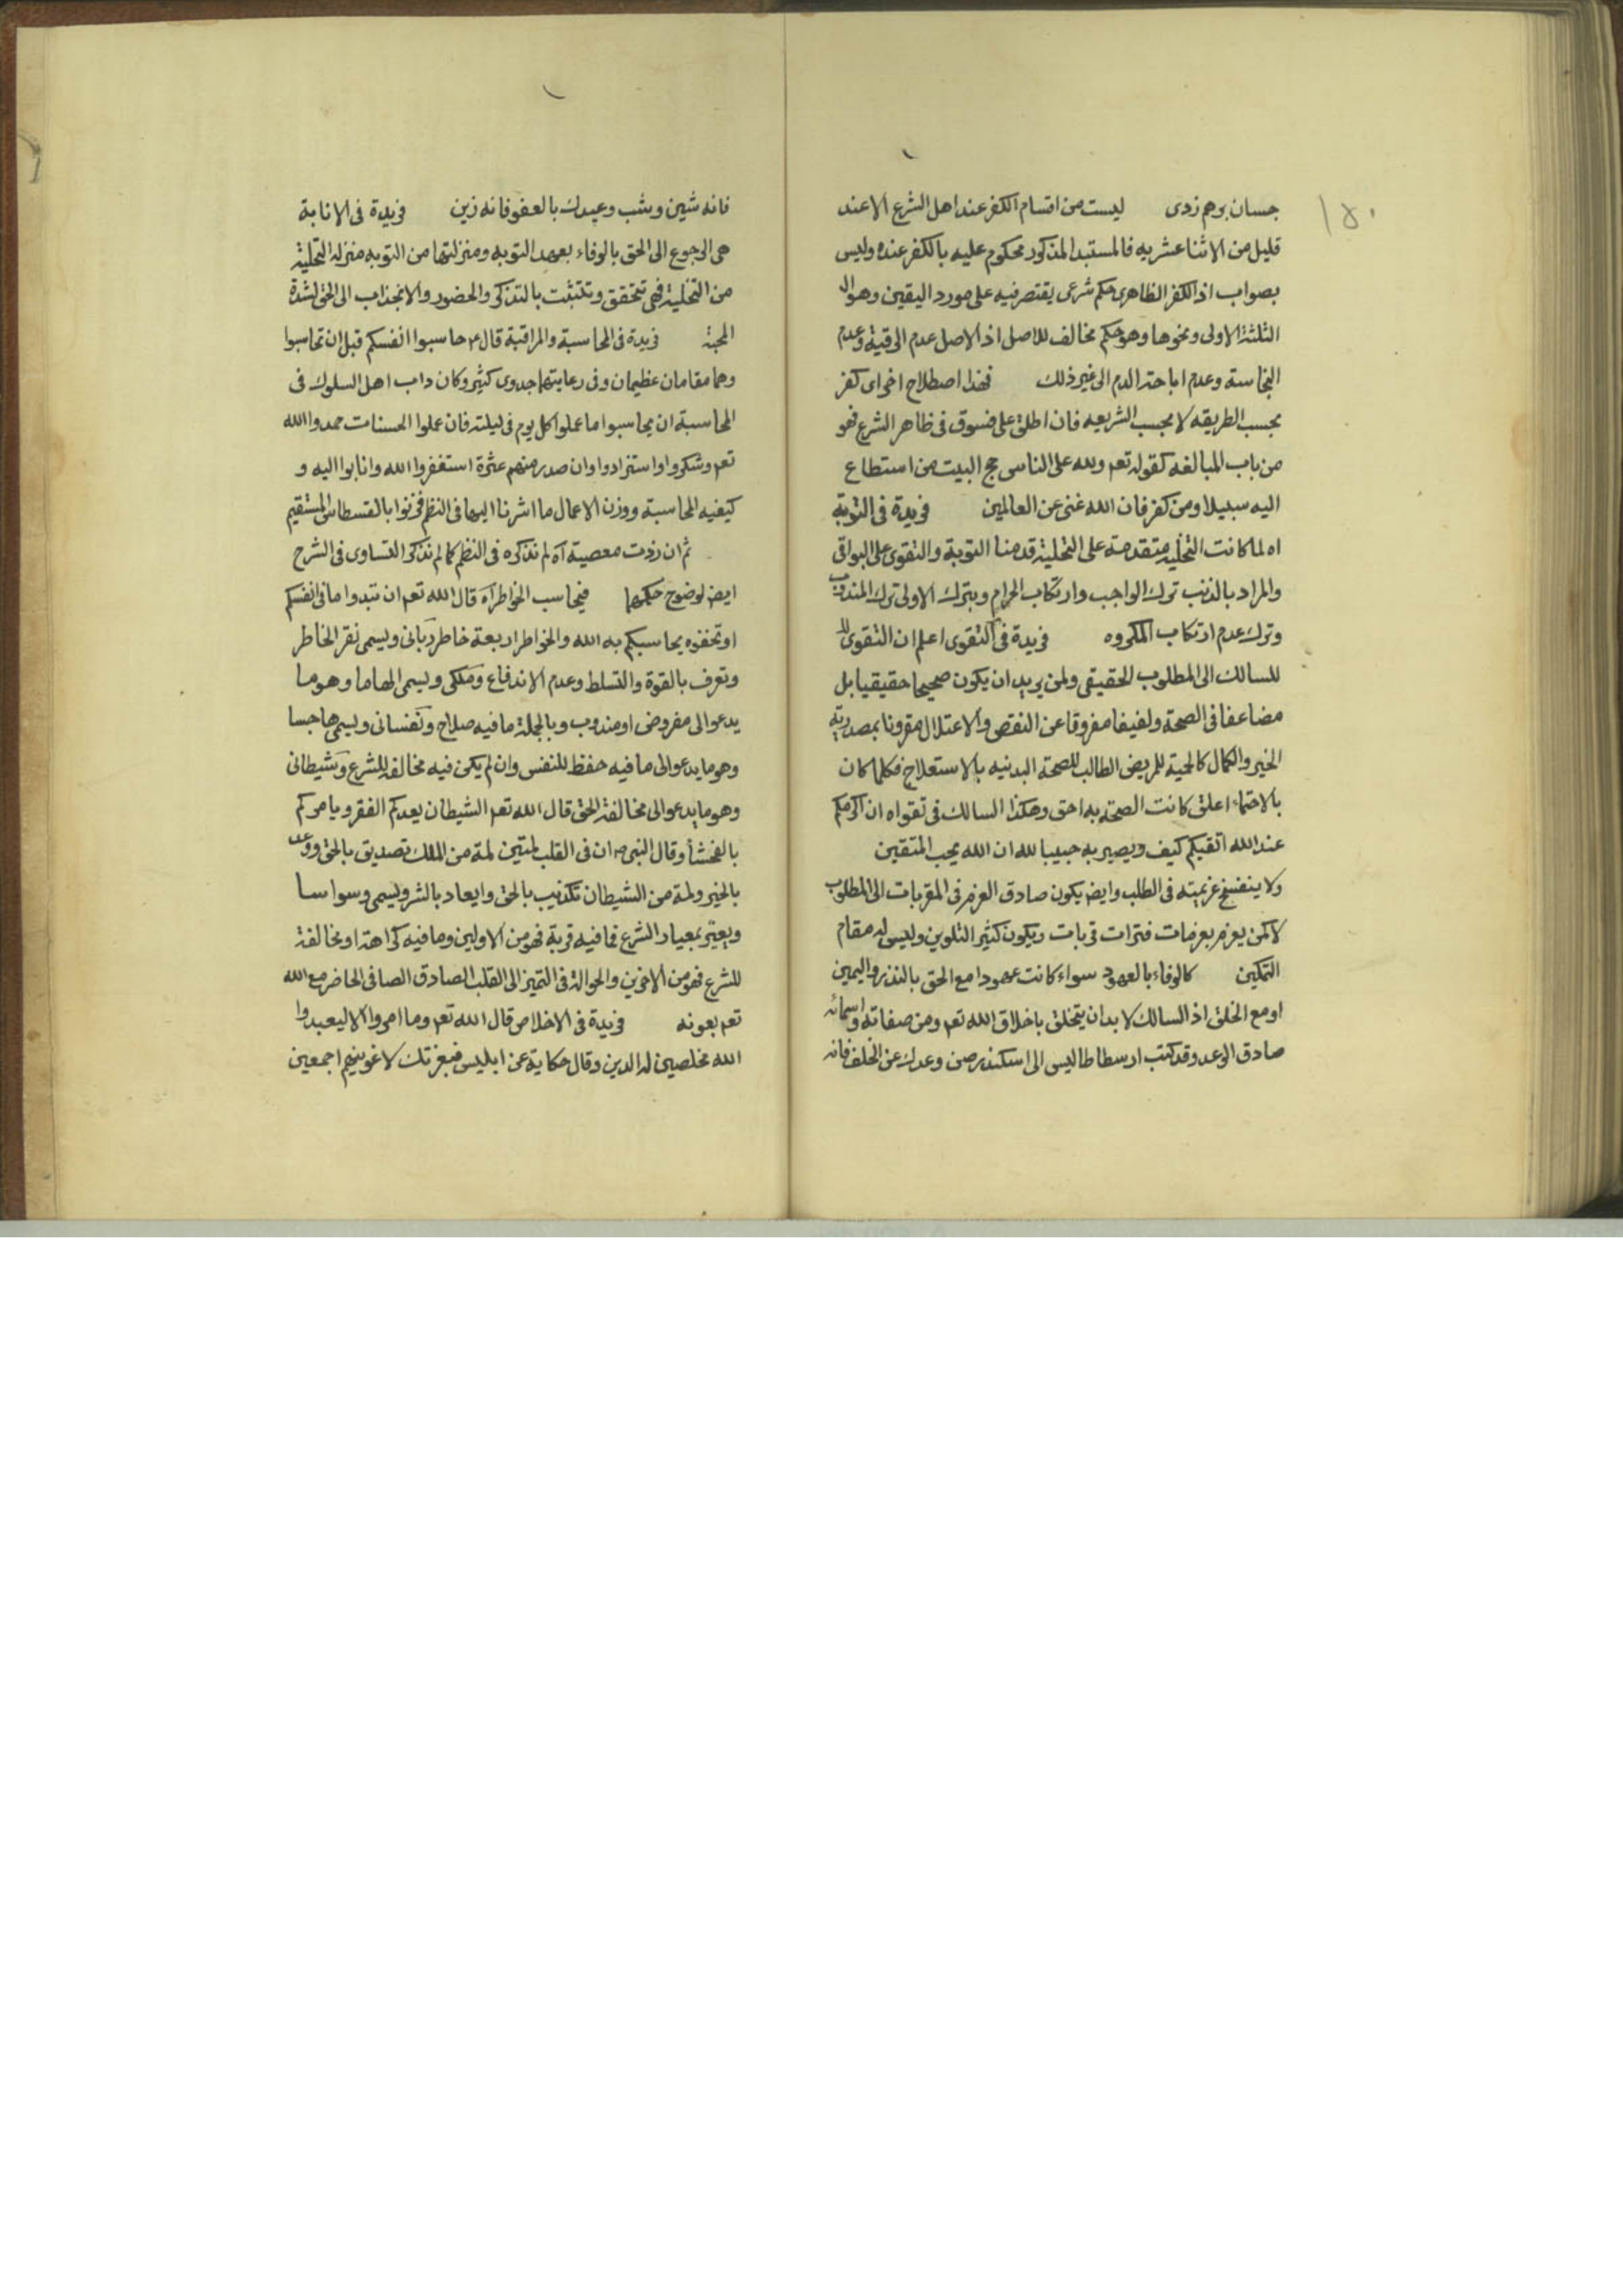 ١٥٠
جسان برهم زدى ليست من اقسام الكفر عند اهل الشرع الا عند
قليل من الاثنا عشريه فالمستبد المذكور محكوم عليه بالكفر عنده وليس
بصواب اذ الكفر الظاهرى حكم شرعى يقتصر فيه على مورد اليقين وهو ال
الثلثة الاولى ونحوها وهو حكم مخالف للاصل اذ الاصل عدم الرقية وعدم
النجاسة وعدم اباحة الدم الى غير ذلك فهذا اصطلاح اخر اى كفر
بحسب الطريقه لا بحسب الشريعه فان اطلق على فسوق فى ظاهر الشرع فهو
من باب المبالغه كقوله تعم ولله على الناس حج البيت من استطاع
اليه سبيلا ومن كفر فان الله غنى عن العالمين فريدة فى التوبة
اه لما كانت التخلية متقدمة على التحلية قدمنا التوبة والتقوى على البواقى
والمراد بالذنب ترك الواجب وارتكاب الحرام وبترك الاولى ترك المندوب
وترك عدم ارتكاب المكروه فريدة فى التقوى اعلم ان التقوى لل
للسالك الى المطلوب الحقيقى ولمن يريد ان يكون صحيحا حقيقيا بل
مضاعفا فى الصحة ولفيفا مفروقا عن النقص والاعتلال مقرونا بمصدرية
الخير والكمال كالحمية للمريض الطالب للصحة البدنيه بالاستعلاج فكلما كان
بالاحتماء اعلق كانت الصحة به احق وهكذا السالك فى تقواه ان اكرمكم
عند الله اتقيكم كيف ويصير به حبيبا لله ان الله يحب المتقين
ولا ينفسخ عزيمته فى الطلب وايض يكون صادق العزم فى المقربات الى المطلوب
لا كمن يعزم بعزمات فترات قربات ويكون كثير التلوين وليس له مقام
التمكين كالوفاء بالعهود سواء كانت عهودا مع الحق بالنذر واليمين
او مع الخلق اذ السالك لا بد ان يتخلق باخلاق الله تعم ومن صفاته واسمائه
صادق الوعد وقد كتب ارسطاطاليس الى اسكندر صن وعدك عن الخلف فانه
فانه شين وشب وعيدك بالعفو فانه زين فريدة فى الانابة
هى الرجوع الى الحق بالوفاء بعهد التوبه ومنزلتها من التوبه منزلة التحلية
من التخلية فهى تتحقق وتتثبت بالتذكر والحضور والانجذاب الى الحق لشدة
المحبة فريدة فى المحاسبة والمراقبة قال ع حاسبوا انفسكم قبل ان تحاسبوا
وهما مقامان عظيمان وفى رعايتهما جدوى كثير وكان داب اهل السلوك فى
المحاسبة ان يحاسبوا ما عملوا كل يوم فى ليلته فان عملوا الحسنات حمدوا الله
تعم وشكروا واستزادوا وان صدر منهم عثرة استغفروا الله وانابوا اليه و
كيفيه المحاسبة ووزن الاعمال ما اشرنا اليها فى النظم فزنوا بالقسطاس المستقيم
ثم ان زذت معصية آه لم نذكره فى النظم كما لم نذكر التساوى فى الشرح
ايض لوضوح حكمهما فيحاسب الخواطر آه قال الله تعم ان تبدوا ما فى انفسكم
او تخفوه يحاسبكم به الله والخواطر اربعة خاطر ربانى ويسمى نقر الخاطر
وتعرف بالقوة والتسلط وعدم الاندفاع وملكى ويسمى الهاما وهو ما
يدعو الى مفروض او مندوب وبالجملة ما فيه صلاح ونفسانى ويسمى هاجسا
وهو ما يدعو الى ما فيه حفظ للنفس وان لم يكن فيه مخالفة للشرع وشيطانى
وهو ما يدعو الى مخالفة الحق قال الله تعم الشيطان يعدكم الفقر ويامركم
بالفحشأ وقال النبى ص ان فى القلب لمتين لمة من الملك تصديق بالحق ووعد
بالخير ولمة من الشيطان تكذيب بالحق وايعاد بالشر ويسمى وسواسا
ويعير بمعيار الشرع فما فيه قربة فهو من الاولين وما فيه كراهة او مخالفة
للشرع فهو من الاخرين والحوالة فى التميز الى القلب الصادق الصافى الحاضر مع الله
تعم بعونه فريدة فى الاخلاص قال الله تعم وما امروا الا ليعبدوا
الله مخلصين له الدين وقال حكاية عن ابليس فبعزتك لاغوينهم اجمعين